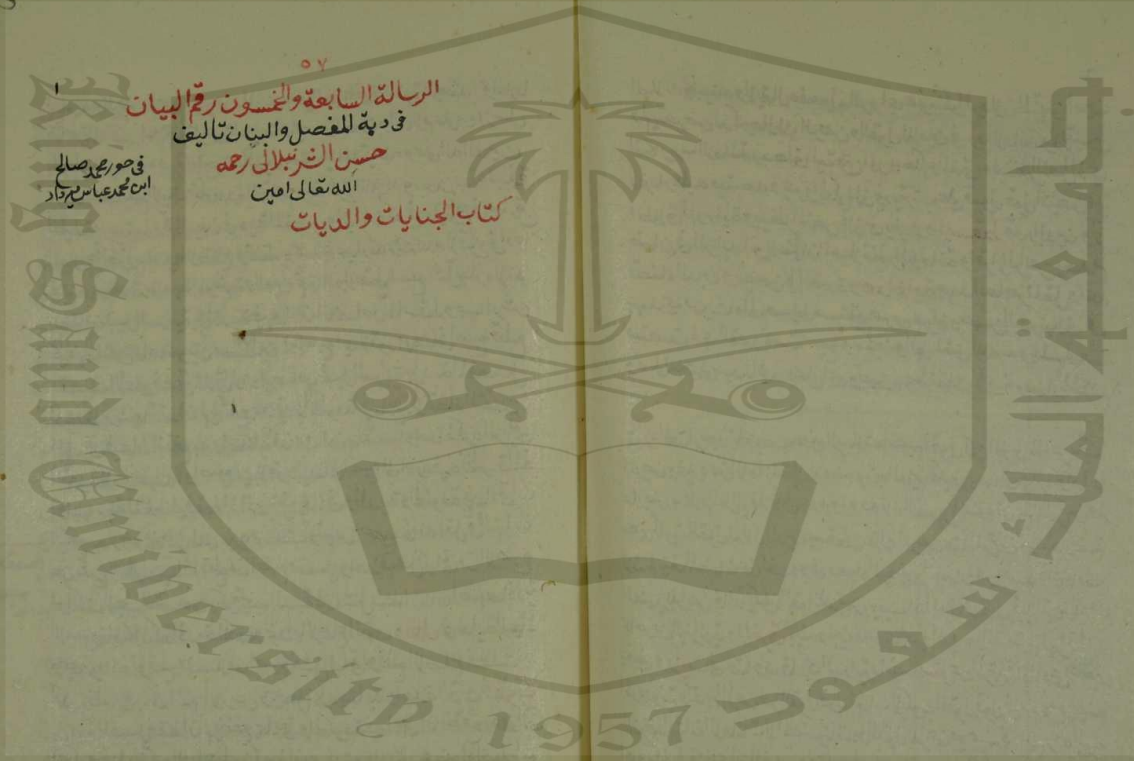 ٥٧
الرسالة السابعة والخمسون رقم البيان
١
فى دية المفصل والبنان تاليف
حسن الشرنبلالى رحمه
الله تعالى امين
كتاب الجنايات والديات
فى حوز محمد صالح
ابن محمد عباس ميرداد
١
جامعة الملك سعود
King Saud University 1957